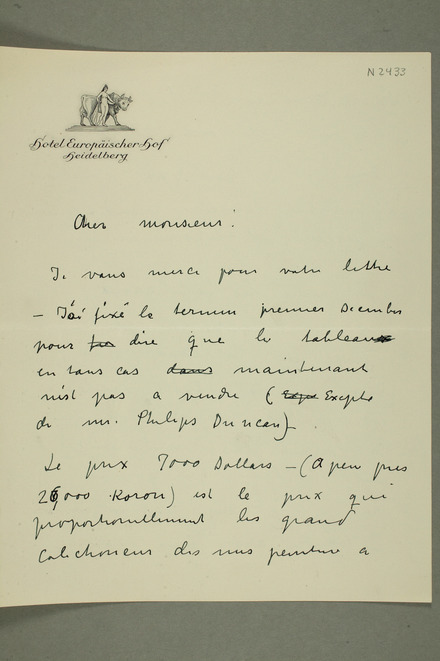 N 2433
Hotel Europäischer Hof
Heidelberg
Cher monsieur!
Je vous merci pour votre lettre
– J'ai fixé le termin premier December
pour dire que le tableau
en tous cas dans maintenant
n'ést pas a vendre (Excepto
de mr. Philips Duncan) –
Le prix 7000 Dollars – (a peu pres
26000 Koron) est le prix qui
proportionellement les grand
des mes peinture a